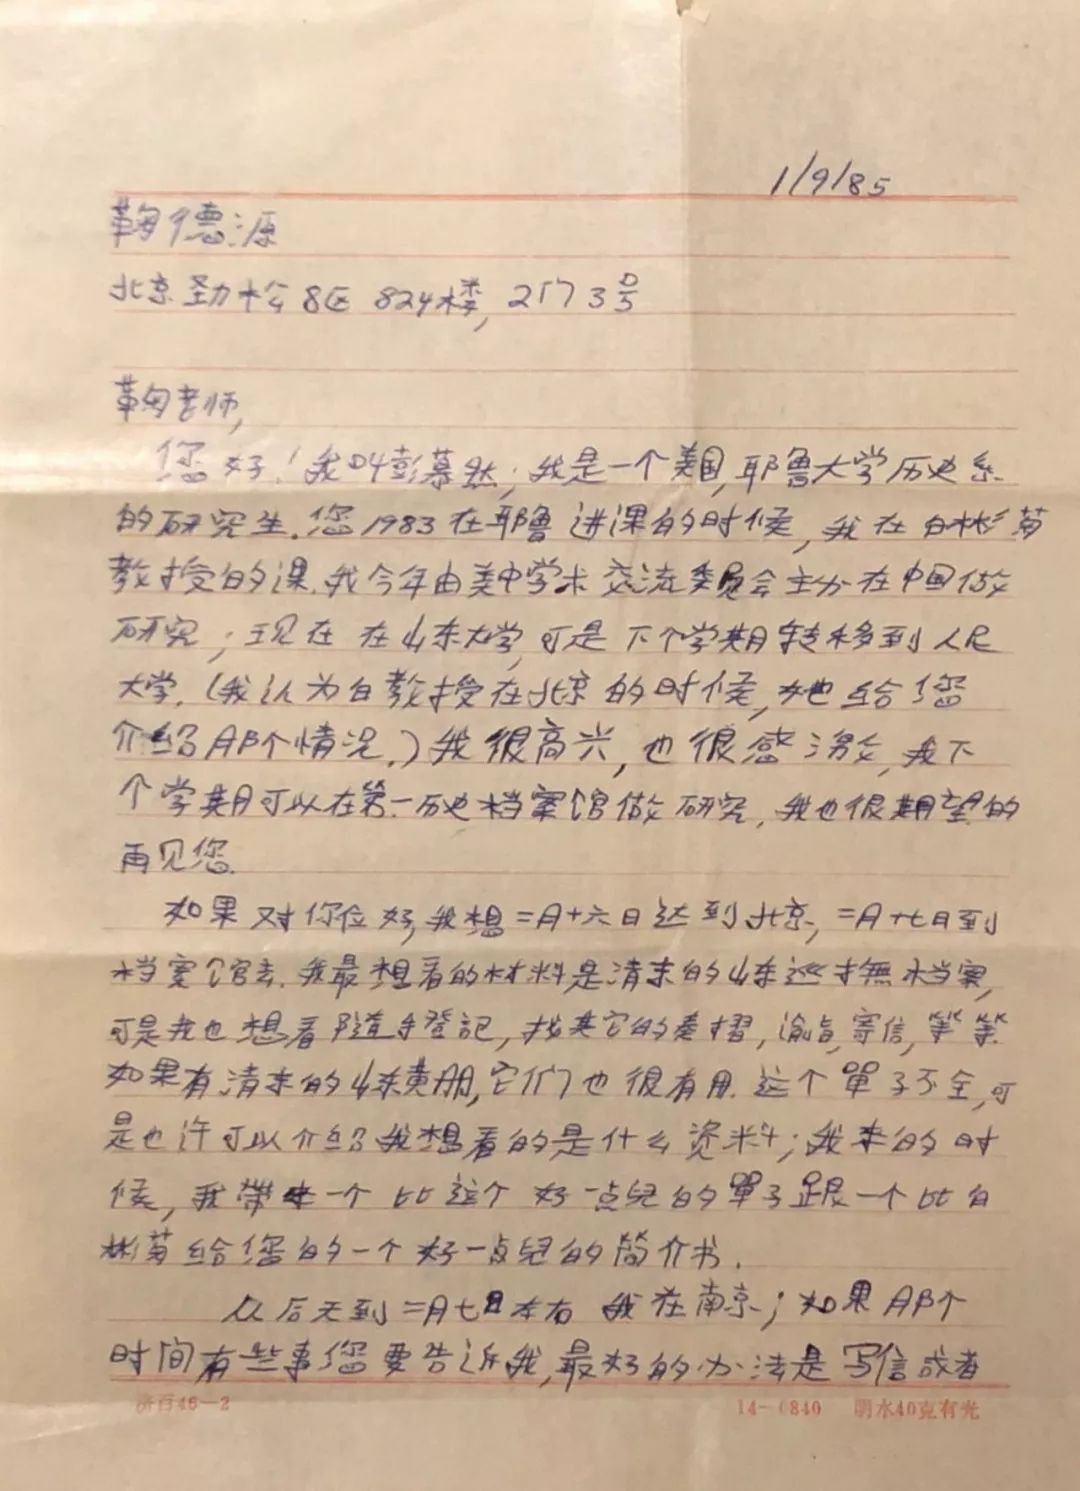 1/9/85
鞠德源
北京劲松8区 824楼, 2门 3号
鞠老师,
您好！我叫彭慕然; 我是一个美国, 耶鲁大学历史系
的研究生. 您1983在耶鲁进课的时候, 我在白彬菊
教授的课. 我今年由美中学术交流委员会主办在中国做
研究; 现在在山东大学, 可是下个学期转移到人民
大学. (我认为白教授在北京的时候, 她给您
介绍那个情况.) 我很高兴, 也很感激, 我下
个学期可以在第一历史档案馆做研究, 我也很期望的
再见您.
如果对你位好, 我想二月十六日达到北京, 二月十七日到
档案馆去. 我最想看的材料是清末的山东巡抚無档案,
可是我也想看随手登記, 找其它的奏摺, 谕旨, 寄信, 等等.
如果有清末的山东黄册, 它们也很有用. 这个單子不全, 可
是也许可以介绍我想看的是什么资料; 我来的时
候, 我带来一个比这个好一点兒的單子跟一个比白
彬菊给您的一个好一点兒的简介书.
从后天到二月七日左右 我在南京; 如果那个
时间有些事您要告诉我, 最好的办法是写信或者
济百46-2
14-0840 明水40克有光